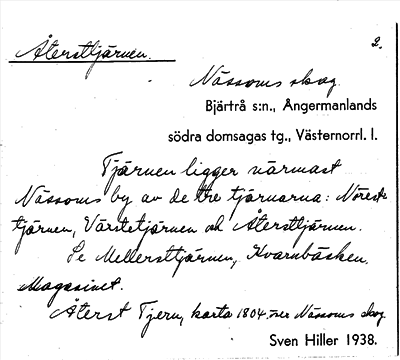 Återsttjärnen.
2.
Nässoms skog.
Bjärtrå s:n., Ångermanlands
södra domsagas tg., Västernorrl. l.
Tjärnen ligger närmast
Nässoms by av de tre tjärnarna: Nörest-
tjärnen, Värstetjärnen och Återsttjärnen.
Se Mellersttjärnen, Kvarnbäcken.
Magasinet.
Återst Tjern, karta 1804 över Nässoms skog
Sven Hiller 1938.